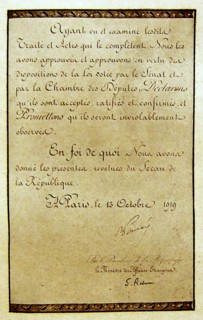 Ayant vu et examiné lesdits
Traité et Actes qui le complètent Nous les
avons approuvés et approuvons en vertu des
dispositions de la loi votée par le Sénat et
par la Chambre des Députés, Déclarons
qu'ils sont acceptés, ratifiés et confirmés, et
Promettons qu'ils seront inviolablement
observés.
En foi de quoi Nous avons
donné les présentes, revêtues du Sceau de
la République.
A Paris, le 13 Octobre 1919
Par le Président de la République
Le Ministre des Affaires Étrangères